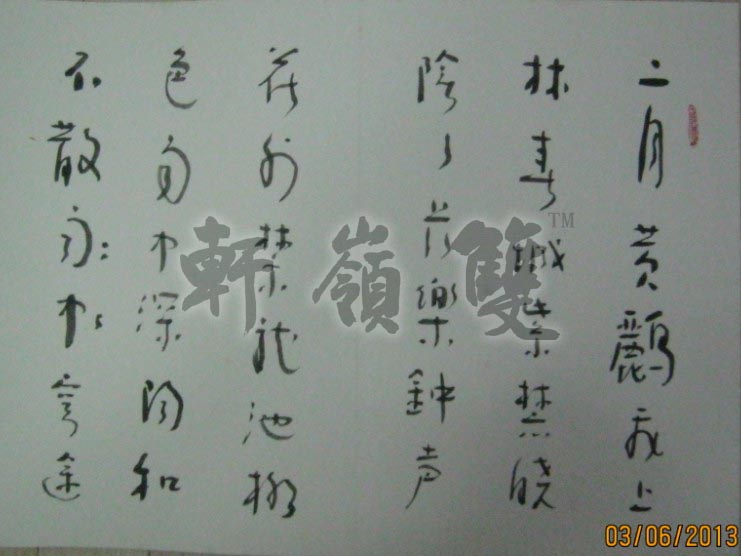 二月黄鸝飛上
林春城紫禁曉
陰々長樂鐘声
花外禁龍池柳
色雨中深阳和
不散窮途
軒嶺雙™
03/06/2013